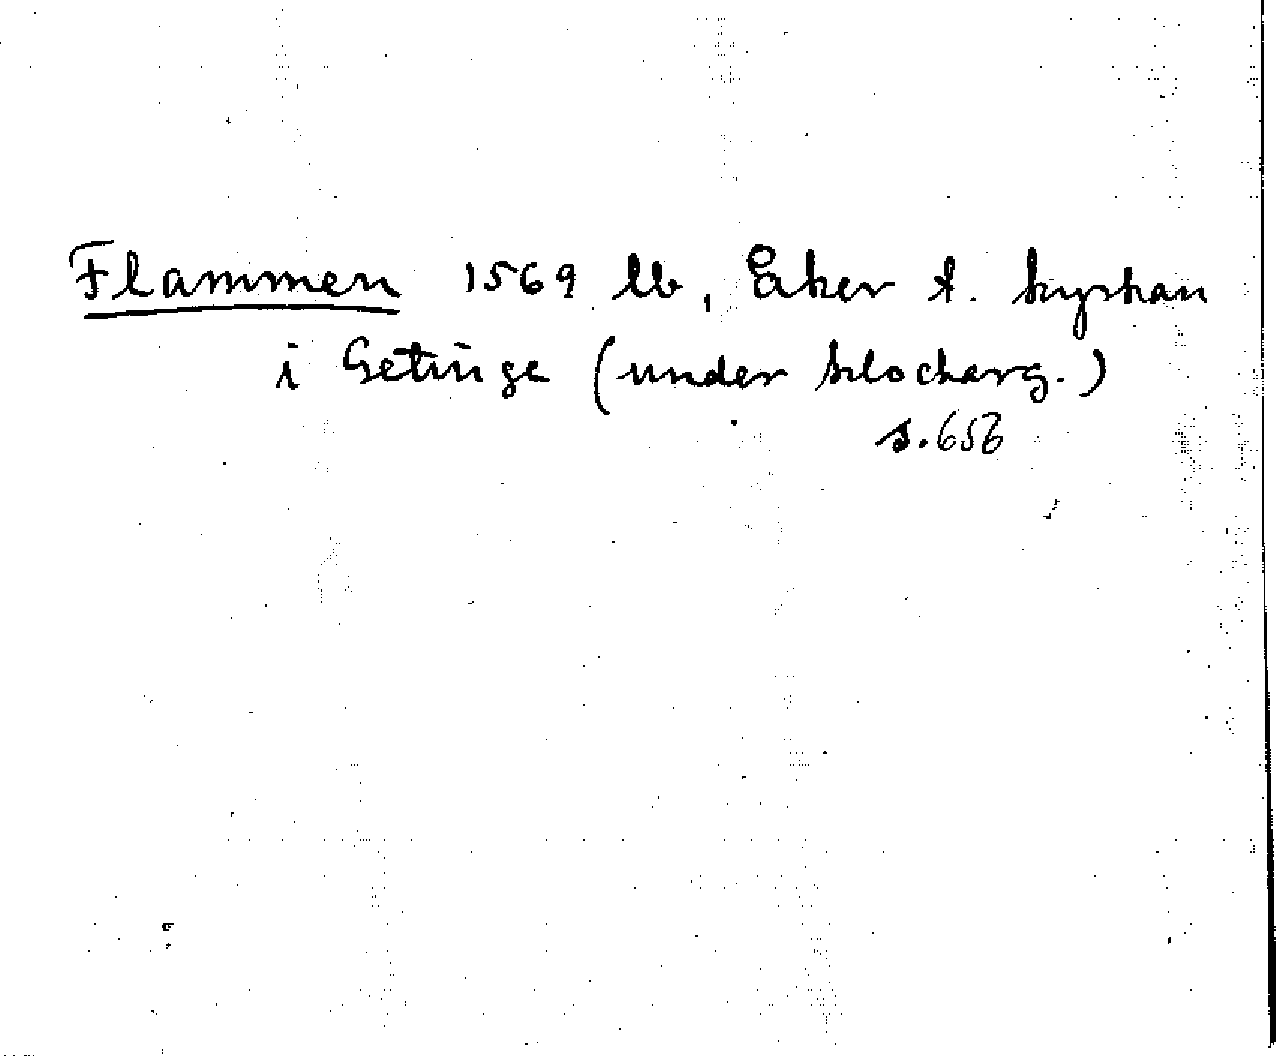 Flammen 1569 lb, Eker t. kyrkan
i Getinge (under klockarg.)
s. 656